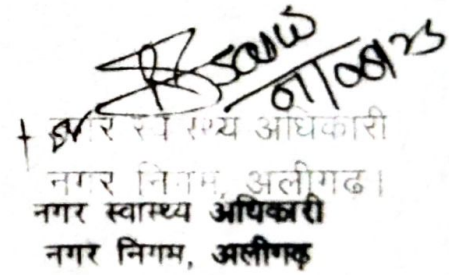 01/08/25
नगर स्वास्थ्य अधिकारी
नगर निगम, अलीगढ।
नगर स्वास्थ्य अधिकारी
नगर निगम, अलीगढ़